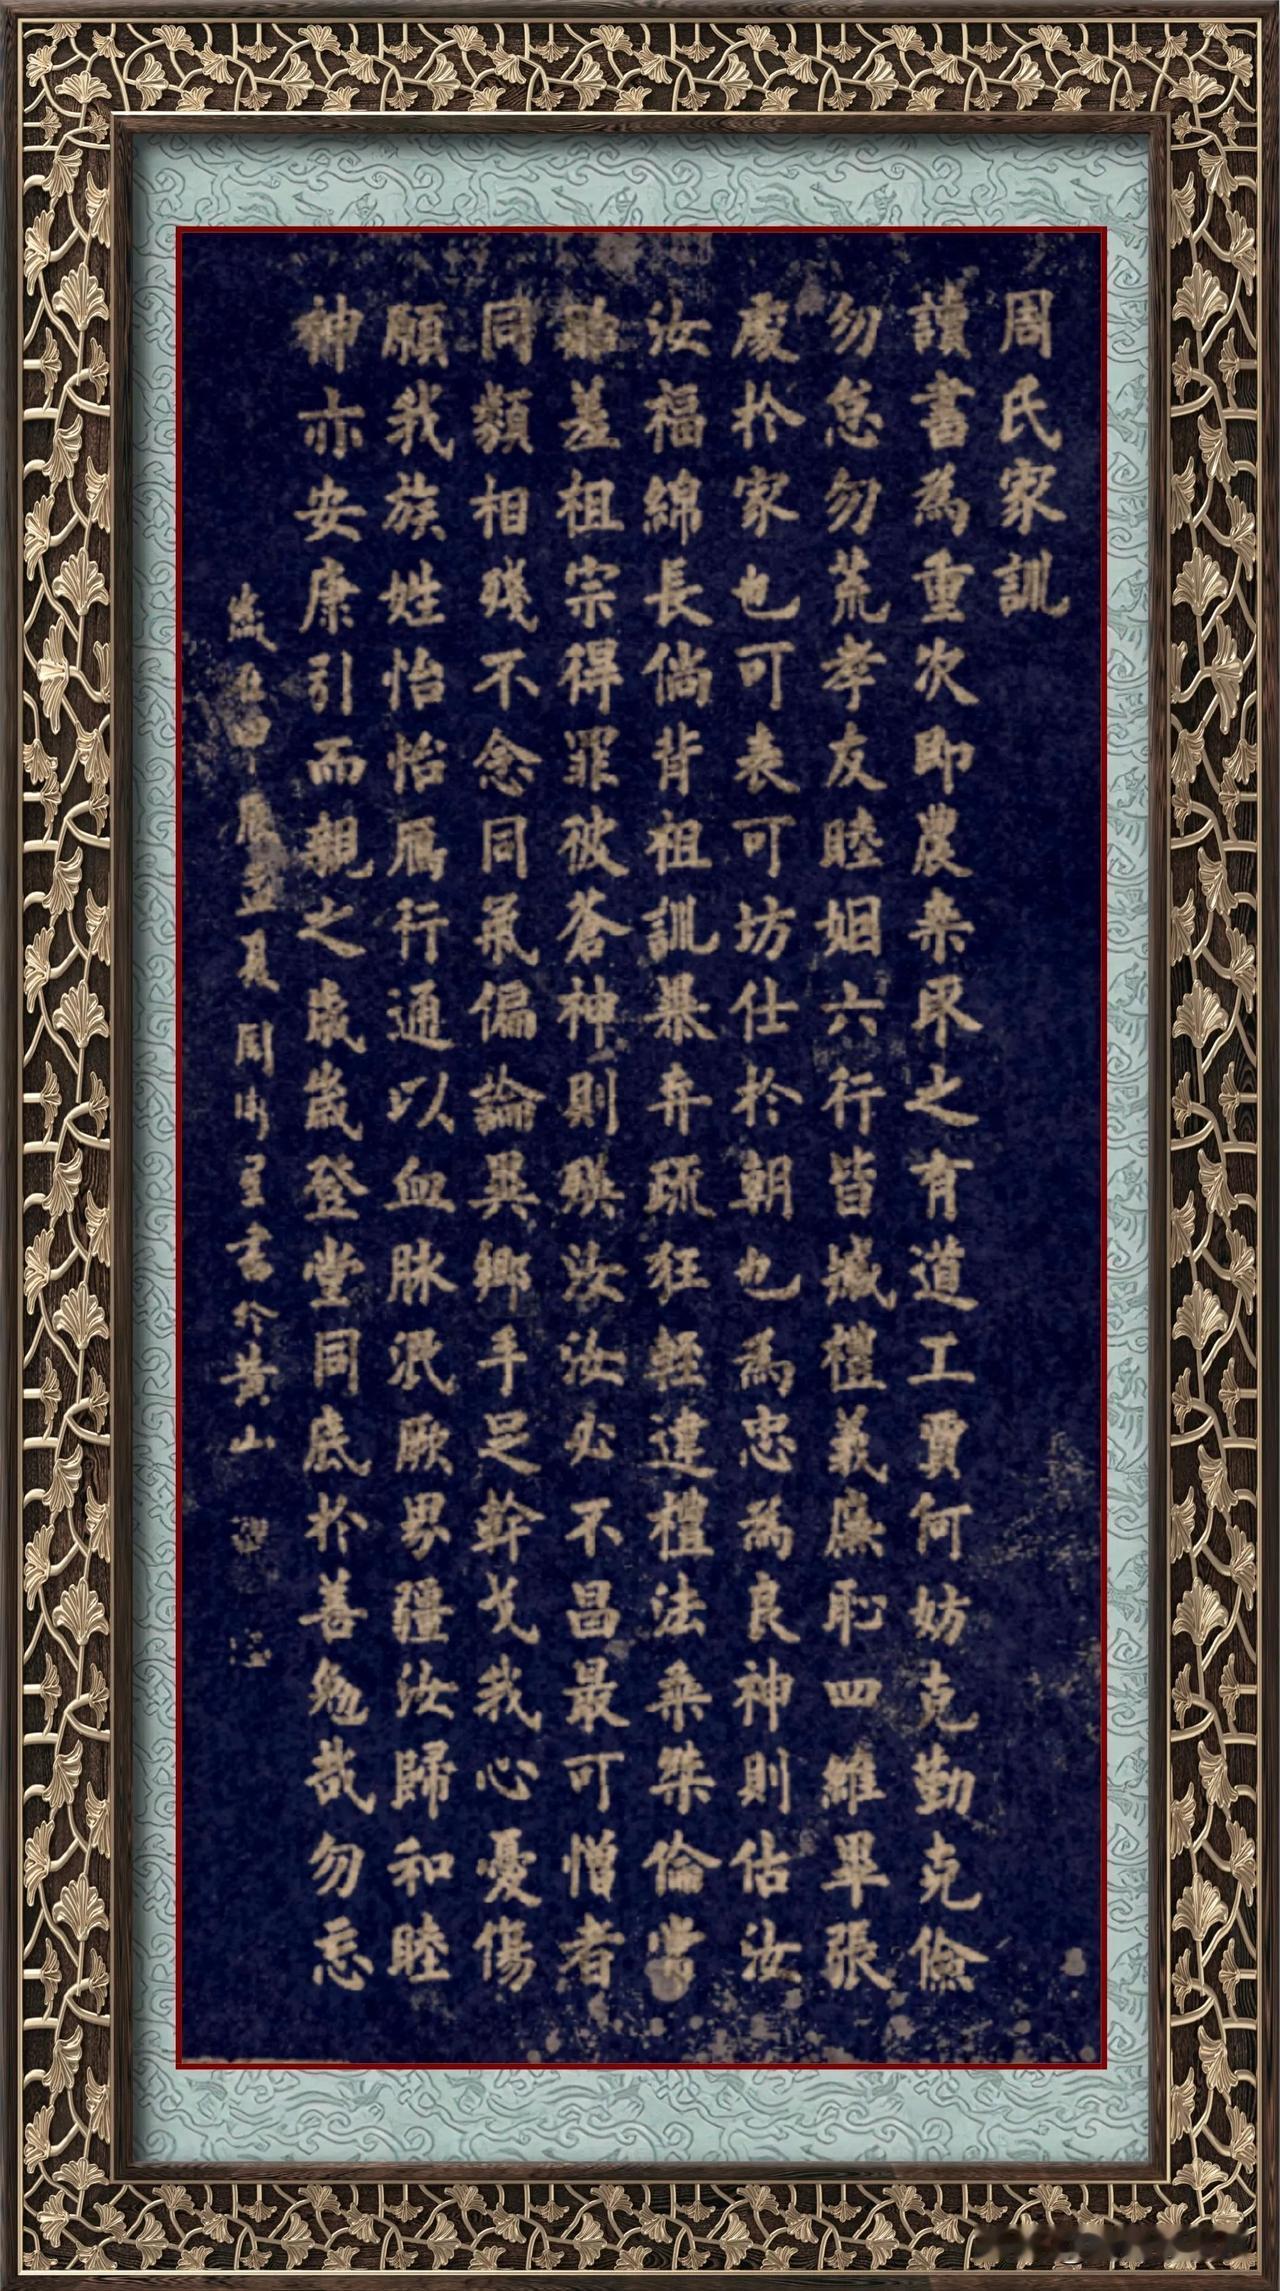 周氏家訓
讀書為重次即農桒取之有道工賈何妨克勤克儉
勿怠勿荒孝友睦姻六行皆臧禮義廉恥四維畢張
處於家也可表可坊仕於朝也為忠為良神則佑汝
汝福綿長倘背祖訓暴弃疏狂輕違禮法乖舛倫常
貽羞祖宗得罪彼蒼神則殃汝汝必不昌最可憎者
同類相殘不念同氣偏論異鄉手足幹戈我心憂傷
願我族姓怡怡雁行通以血脉泯厥界疆汝歸和睦
神亦安康引而親之歲歲登堂同底於善勉哉勿忘
歲在甲辰孟夏周東星書於黃山